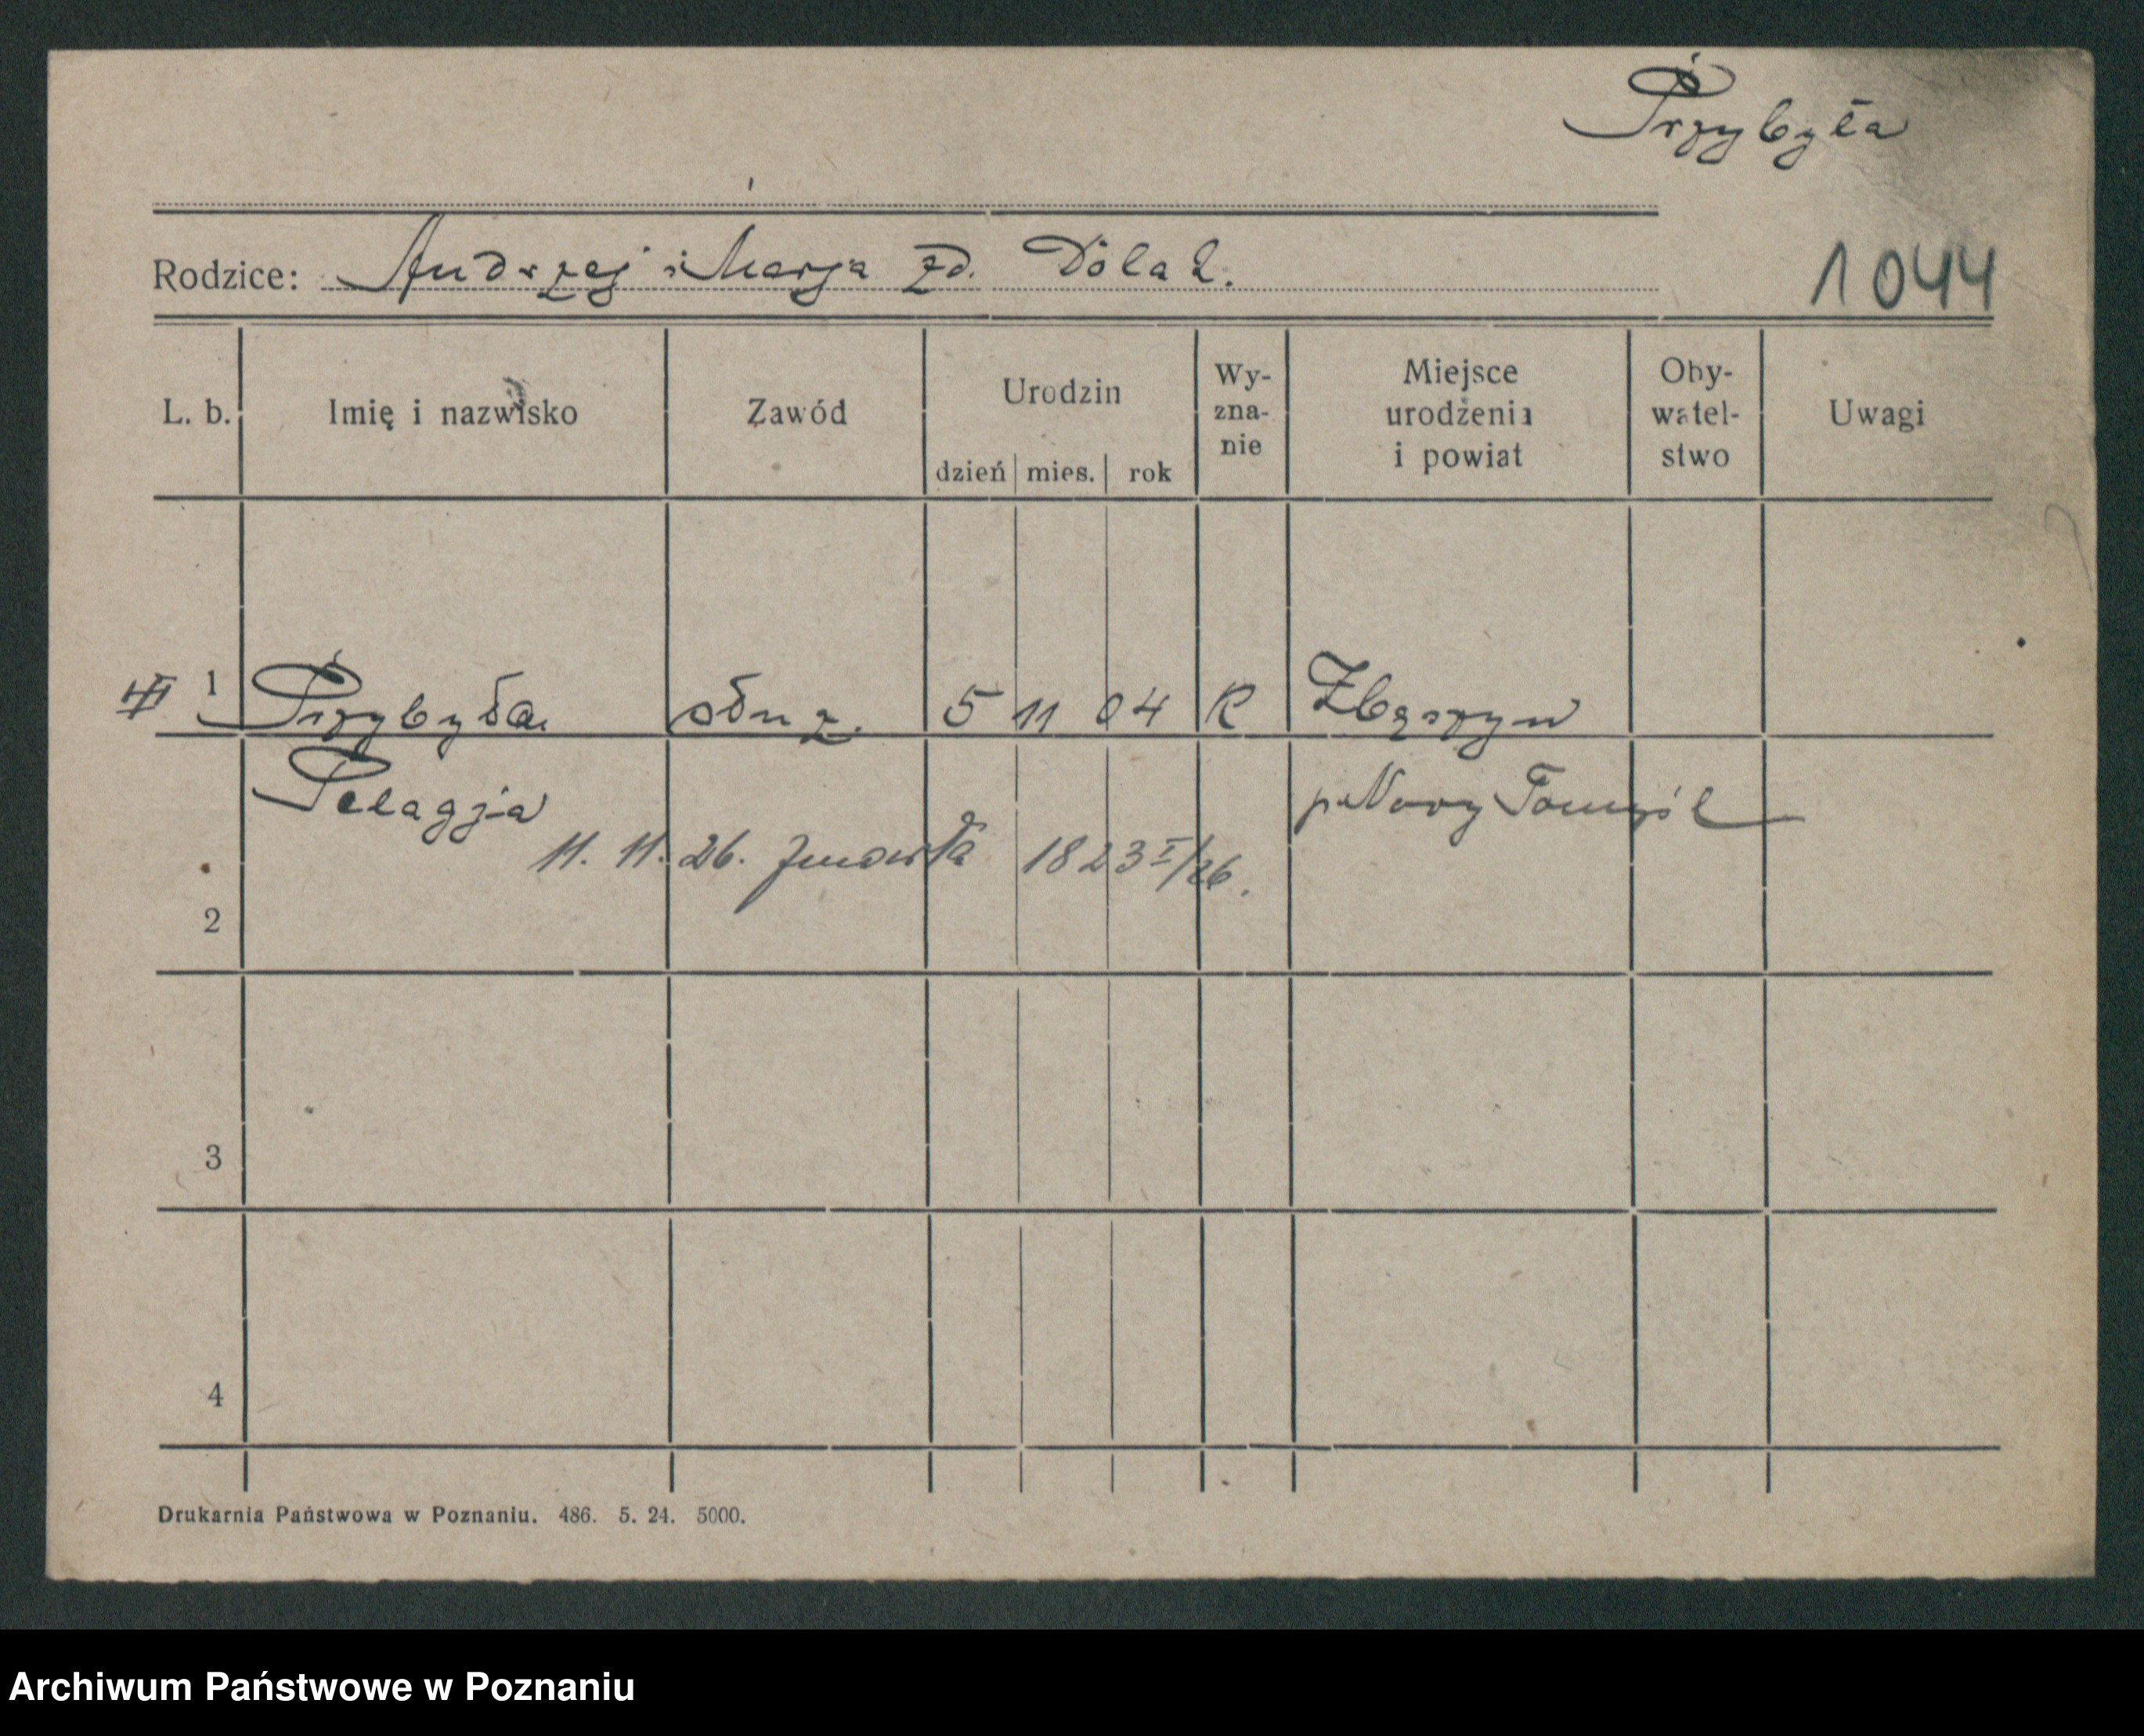 Przybyła
Rodzice: Andrzej i Marja zd. Dolat.
1044
L. b. Imię i nazwisko Zawód Urodzin dzień mies. rok Wy-zna-nie Miejsce urodzenia i powiat Oby-watel-stwo Uwagi
1 Przybyła służ. 5 11 04 R Zbąszyn
Pelagja p. Nowy Tomyśl
11. 11. 26. zmarła 1823 I/26.
2
3
4
Drukarnia Państwowa w Poznaniu. 486. 5. 24. 5000.
Archiwum Państwowe w Poznaniu